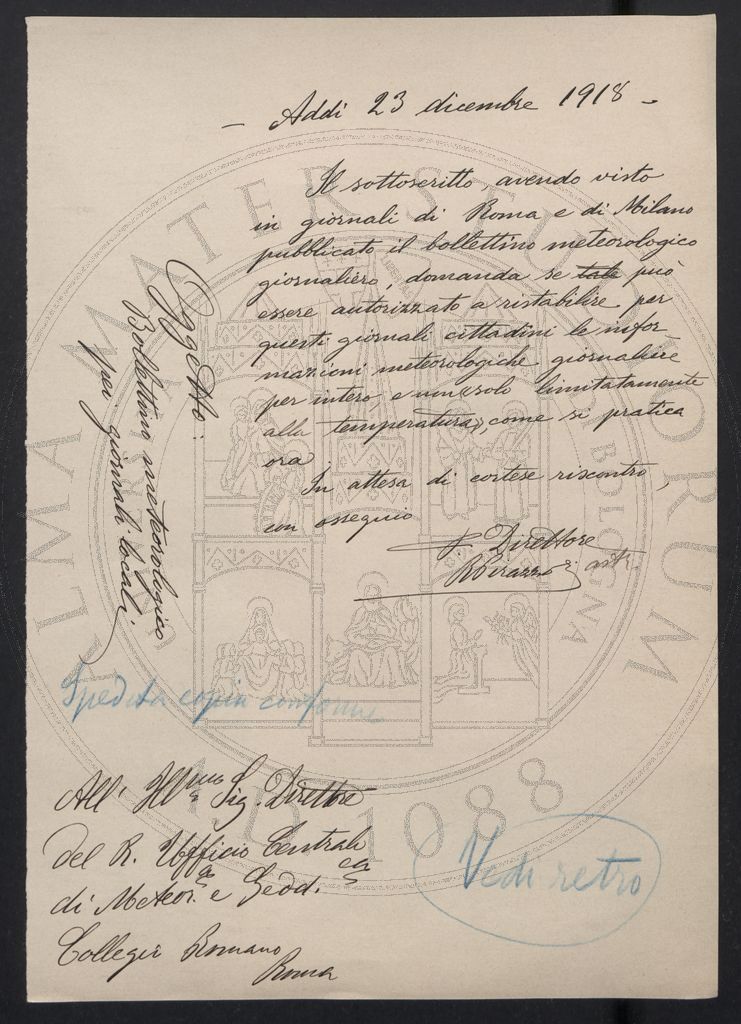 - Addì 23 dicembre 1918 -
Il sottoscritto, avendo visto
in giornali di Roma e di Milano
pubblicato il bollettino meteorologico
giornaliero, domanda se tale può
essere autorizzato a ristabilire per
questi giornali cittadini le infor
mazioni meteorologiche giornaliere
per intero, e non solo limitatamente
alla temperatura, come si pratica
ora
In attesa di cortese riscontro,
con ossequio
Il Direttore
astr.
Oggetto:
Bollettino meteorologico
per giornali locali
Spedita copia conforme
All' Ill.mo Sig. Direttore
del R. Ufficio Centrale
di Meteor.ga e Geod.ca
Collegio Romano
Roma
Vedi retro
ALMA MATER STUDIORUM
A.D. 1088